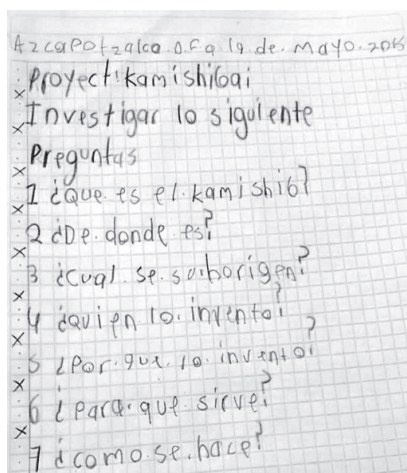 Azcapotzalco. D.F a 19. de. Mayo. 2015
Proyect: kamishibai
Investigar lo siguiente
Preguntas
1 ¿Que. es el. kamishib?
2 ¿De. donde. es?
3 ¿Cual. se. origen?
4 ¿quien lo. invento?
5 ¿Por. que. lo. invento?
6 ¿para. que. sirve?
7 ¿como. se. hace?